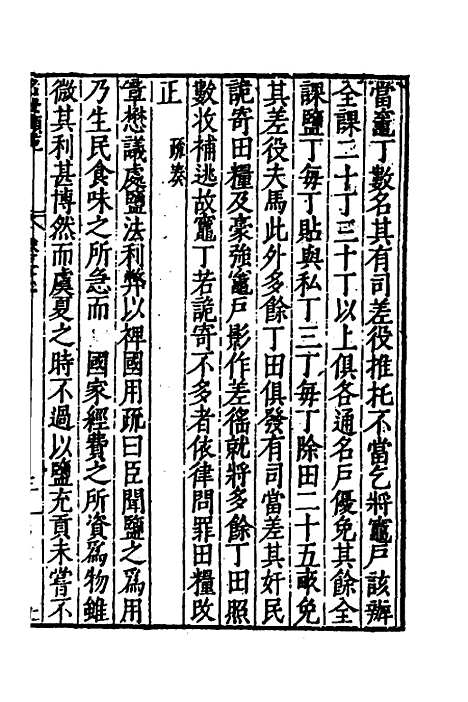 當竈丁數名其有司差役推托不當乞將竈戶該辦
全課二十丁三十丁以上俱各通名戶優免其餘全
課鹽丁每丁貼與私丁三丁每丁除田二十五畝免
其差役夫馬此外多餘丁田俱發有司當差其奸民
詭寄田糧及豪強竈戶影作差徭就將多餘丁田照
數收補逃故竈丁若詭寄不多者依律問罪田糧改
正
疏奏
章懋議處鹽法利弊以裨國用疏曰臣聞鹽之爲用
乃生民食味之所急而 國家經費之所資爲物雖
微其利甚博然而虞夏之時不過以鹽充貢未嘗不